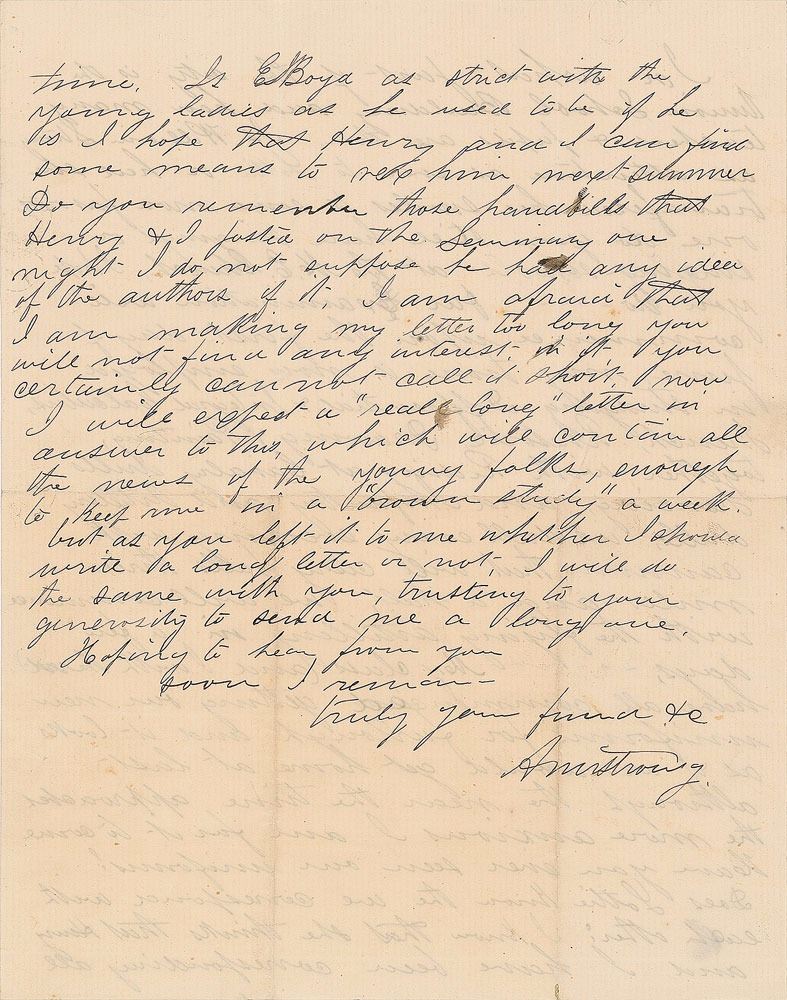 time. Is E Boyd as strict with the
young ladies as he used to be if he
is I hope that Henry and I can find
some means to vex him next summer
Do you remember those handbills that
Henry & I posted on the Seminary one
night I do not suppose he had any idea
of the authors of it. I am afraid that
I am making my letter too long you
will not find any interest in it. you
certainly cannot call it short. now
I will expect a "reall long" letter in
answer to this, which will contain all
the news of the young folks, enough
to keep me in a "brown study" a week.
but as you left it to me whether I should
write a long letter or not, I will do
the same with you, trusting to your
generosity to send me a long one.
Hoping to hear from you
soon I remain
truly your friend &c
Armstrong.